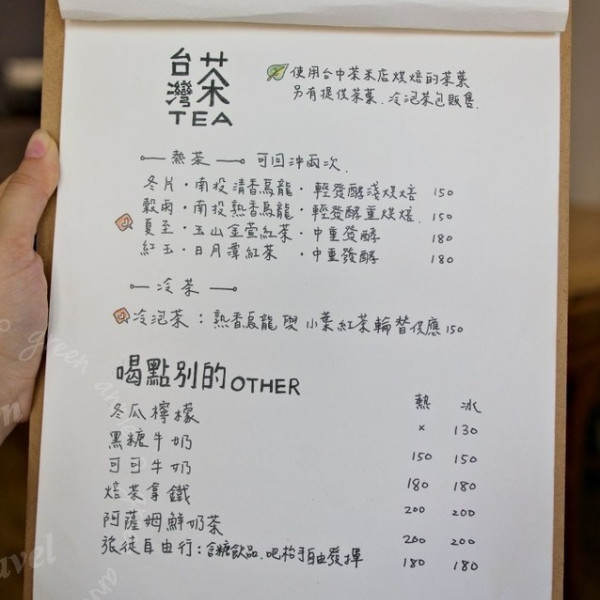 台灣茶
TEA
使用台中茶禾店烘焙的茶葉
另有提供茶葉、冷泡茶包販售.
熱茶 可回沖兩次.
冬片・南投清香烏龍・輕發酵淺烘焙 150
穀雨・南投熟香烏龍・輕發酵重烘焙. 150
夏至・玉山金萱紅茶・中重發酵 180
紅玉・日月潭紅茶・中重發酵 180
冷茶
冷泡茶：熟香烏龍 小葉紅茶輪替供應 150
喝點別的 OTHER
熱 冰
冬瓜檸檬 x 130
黑糖牛奶 150 150
可可牛奶 180 180
焙茶拿鐵 200 200
阿薩姆鮮奶茶 200 200
張徒自由行：含糖飲品.吧枱手自由發揮 180 180
green